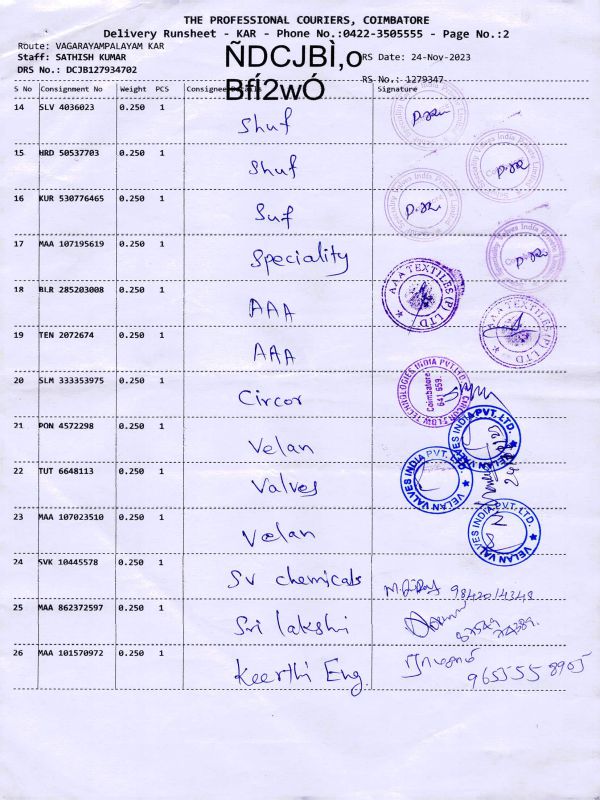 THE PROFESSIONAL COURIERS, COIMBATORE
Delivery Runsheet - KAR - Phone No.:0422-3505555 - Page No.:2
Route: VAGARAYAMPALAYAM KAR
Staff: SATHISH KUMAR
RS Date: 24-Nov-2023
DRS No.: DCJB127934702
RS No.: 1279347
ÑDCJBÌ,o
BfÍ2wÓ
S No Consignment No Weight PCS Consignee Details Signature
14 SLV 4036023 0.250 1 Shuf
15 HRD 50537703 0.250 1 Shuf
16 KUR 530776465 0.250 1 Suf
17 MAA 107195619 0.250 1 Speciality
18 BLR 285203008 0.250 1 AAA AAA TEXTILES (P) LTD
19 TEN 2072674 0.250 1 AAA AAA TEXTILES (P) LTD
20 SLM 333353975 0.250 1 Circor Coimbatore 641 659.
21 PON 4572298 0.250 1 Velan VELAN VALVES INDIA PVT. LTD.
22 TUT 6648113 0.250 1 Valves VELAN VALVES INDIA PVT. LTD.
23 MAA 107023510 0.250 1 Velan VELAN VALVES INDIA PVT. LTD.
24 SVK 10445578 0.250 1 SV chemicals 9842014348
25 MAA 862372597 0.250 1 Sri lakshi
26 MAA 101570972 0.250 1 Keerthi Eng. 9655558905